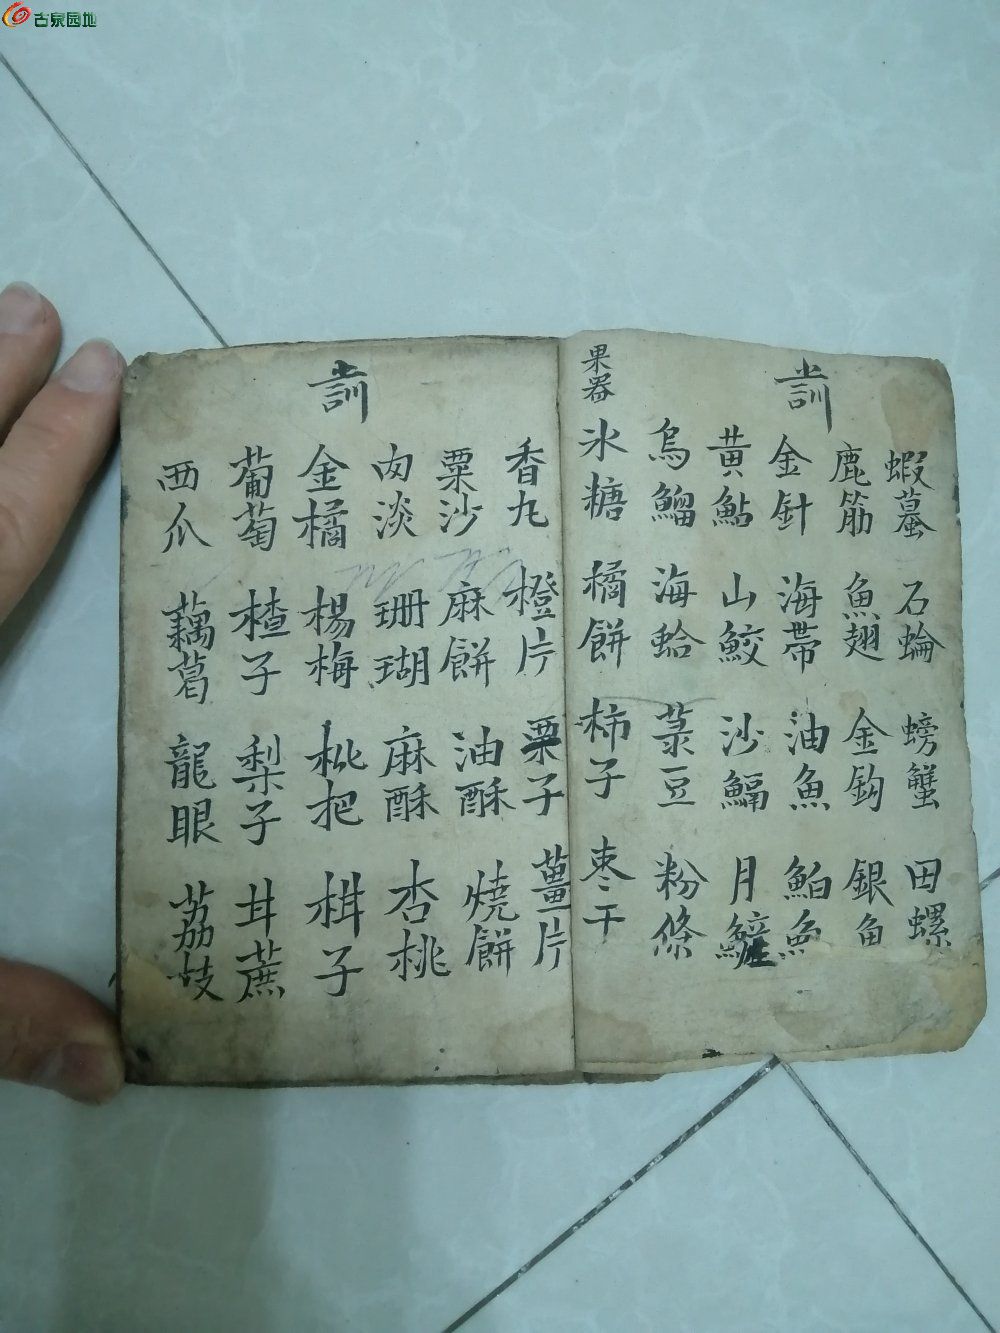 古泉园地
訓
蝦蟇 石蜦 螃蟹 田螺
鹿筋 魚翅 金鈎 銀魚
金針 海帶 油魚 鮊魚
黃鮎 山鮫 沙鰨 月
烏鰡 海蛤 菉豆 粉條
果器
氷糖 橘餅 柿子 枣干
訓
香丸 橙片 栗子 薑片
粟沙 麻餅 油酥 燒餅
肉淡 珊瑚 麻酥 杏桃
金橘 楊梅 枇把 楫子
葡萄 楂子 梨子 甘蔗
西爪 藕葛 龍眼 荔妓